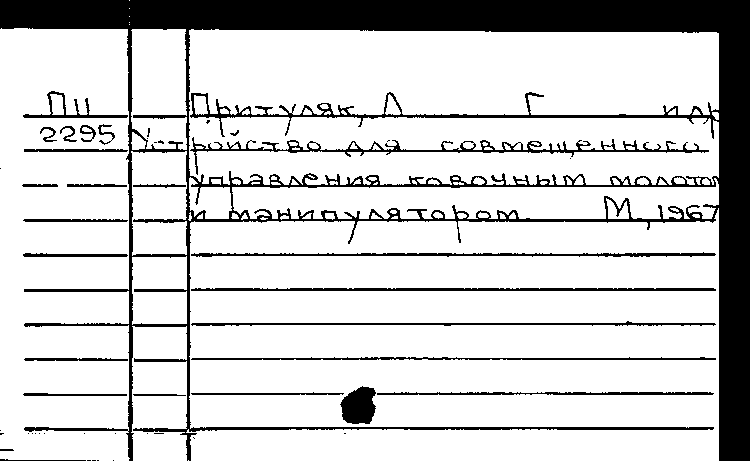 П11 Притуляк, Л Г и др
2295 Устройство для совмещенного
управления ковочным молотом
и манипулятором. М., 1967